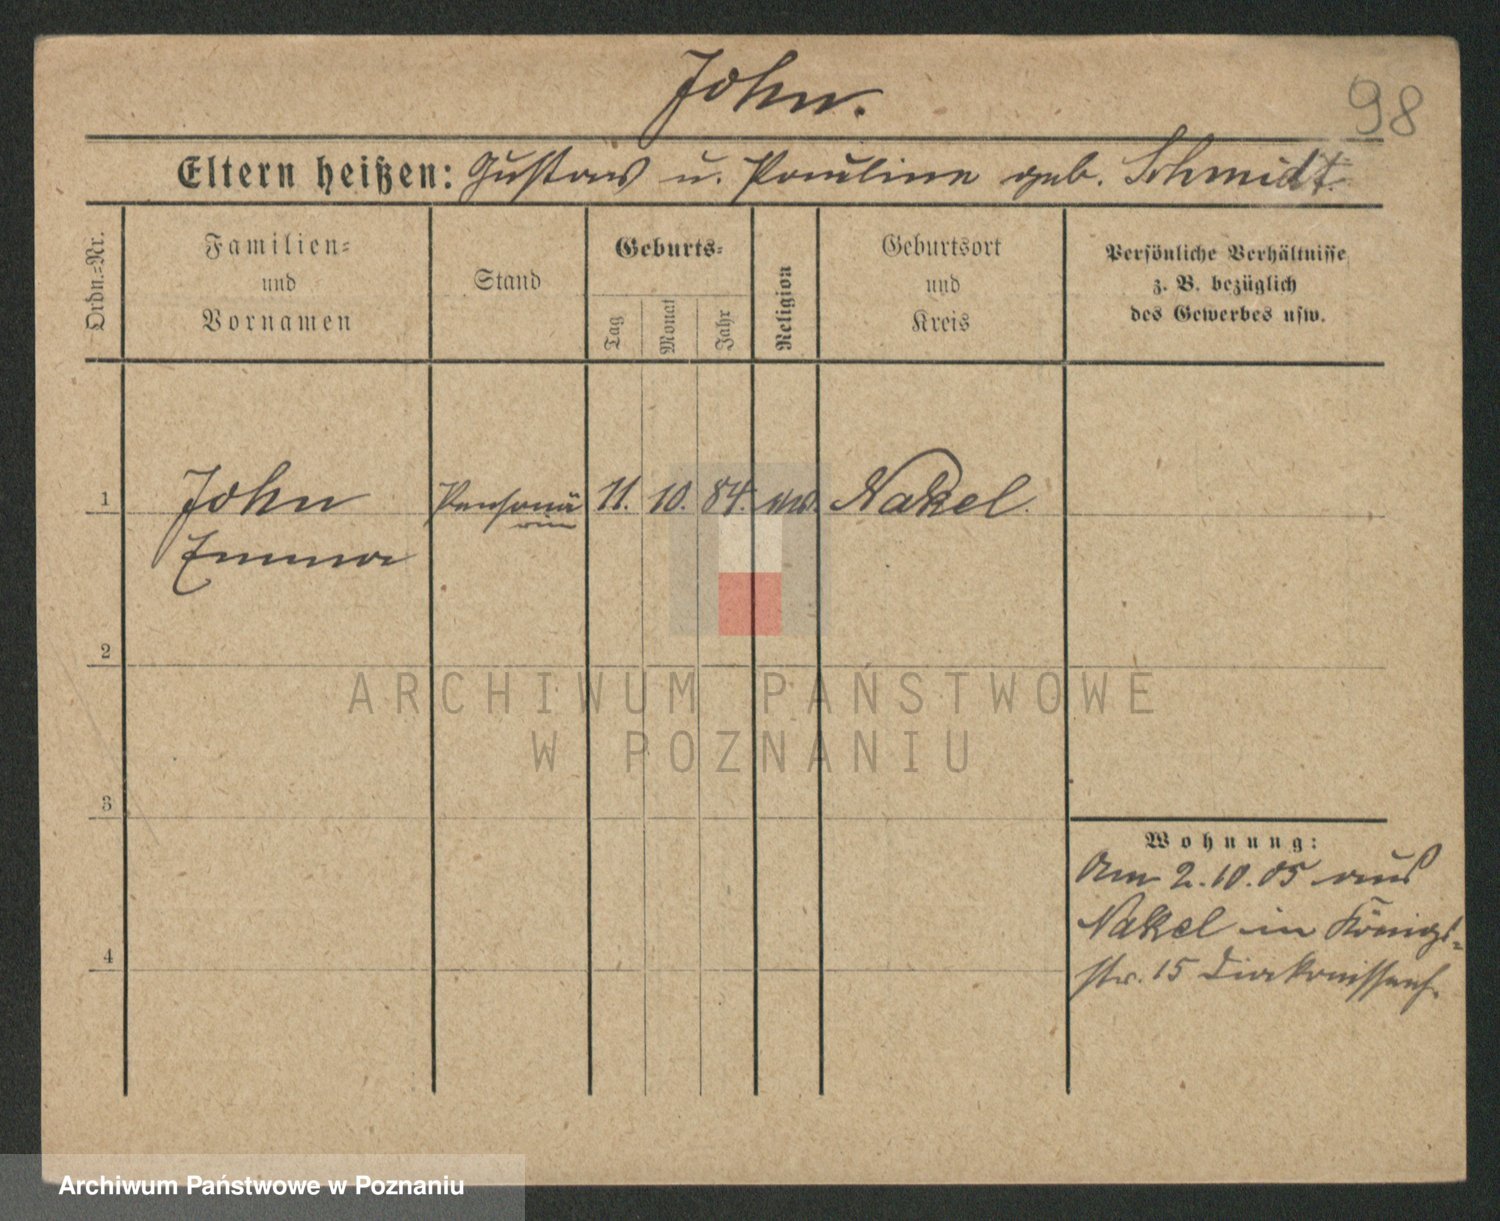 John.
98
Eltern heißen: Gustav u. Pauline geb. Schmidt
Ordn.=Nr.
Familien=
und
Vornamen
Stand
Geburts=
Tag
Monat
Jahr
Religion
Geburtsort
und
Kreis
Persönliche Verhältnisse
z. B. bezüglich
des Gewerbes usw.
1
John
Emma
11. 10. 84.
Nakel.
2
ARCHIWUM PAŃSTWOWE
W POZNANIU
3
Wohnung:
Am 2.10.05 aus
Nakel in Königs=
str. 15 Diakonissenh.
4
Archiwum Państwowe w Poznaniu